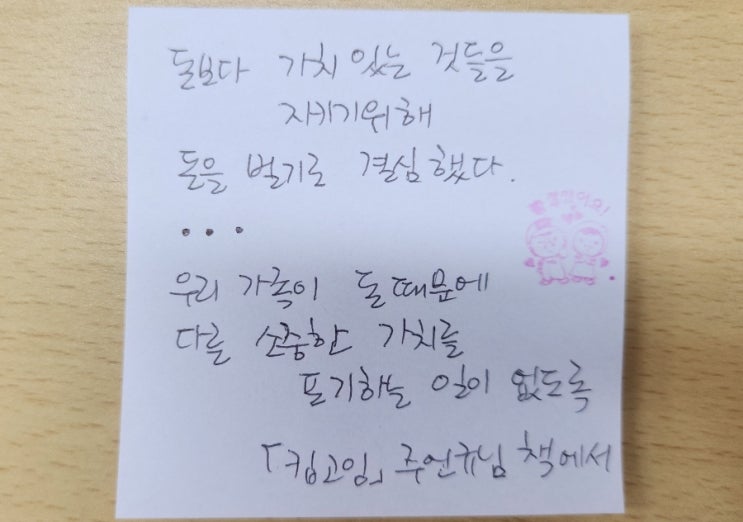 돈보다 가치 있는 것들을
지키기위해
돈을 벌기로 결심했다.
...
우리 가족이 돈 때문에
다른 소중한 가치를
포기하는 일이 없도록
「킵고잉」 주언규님 책에서